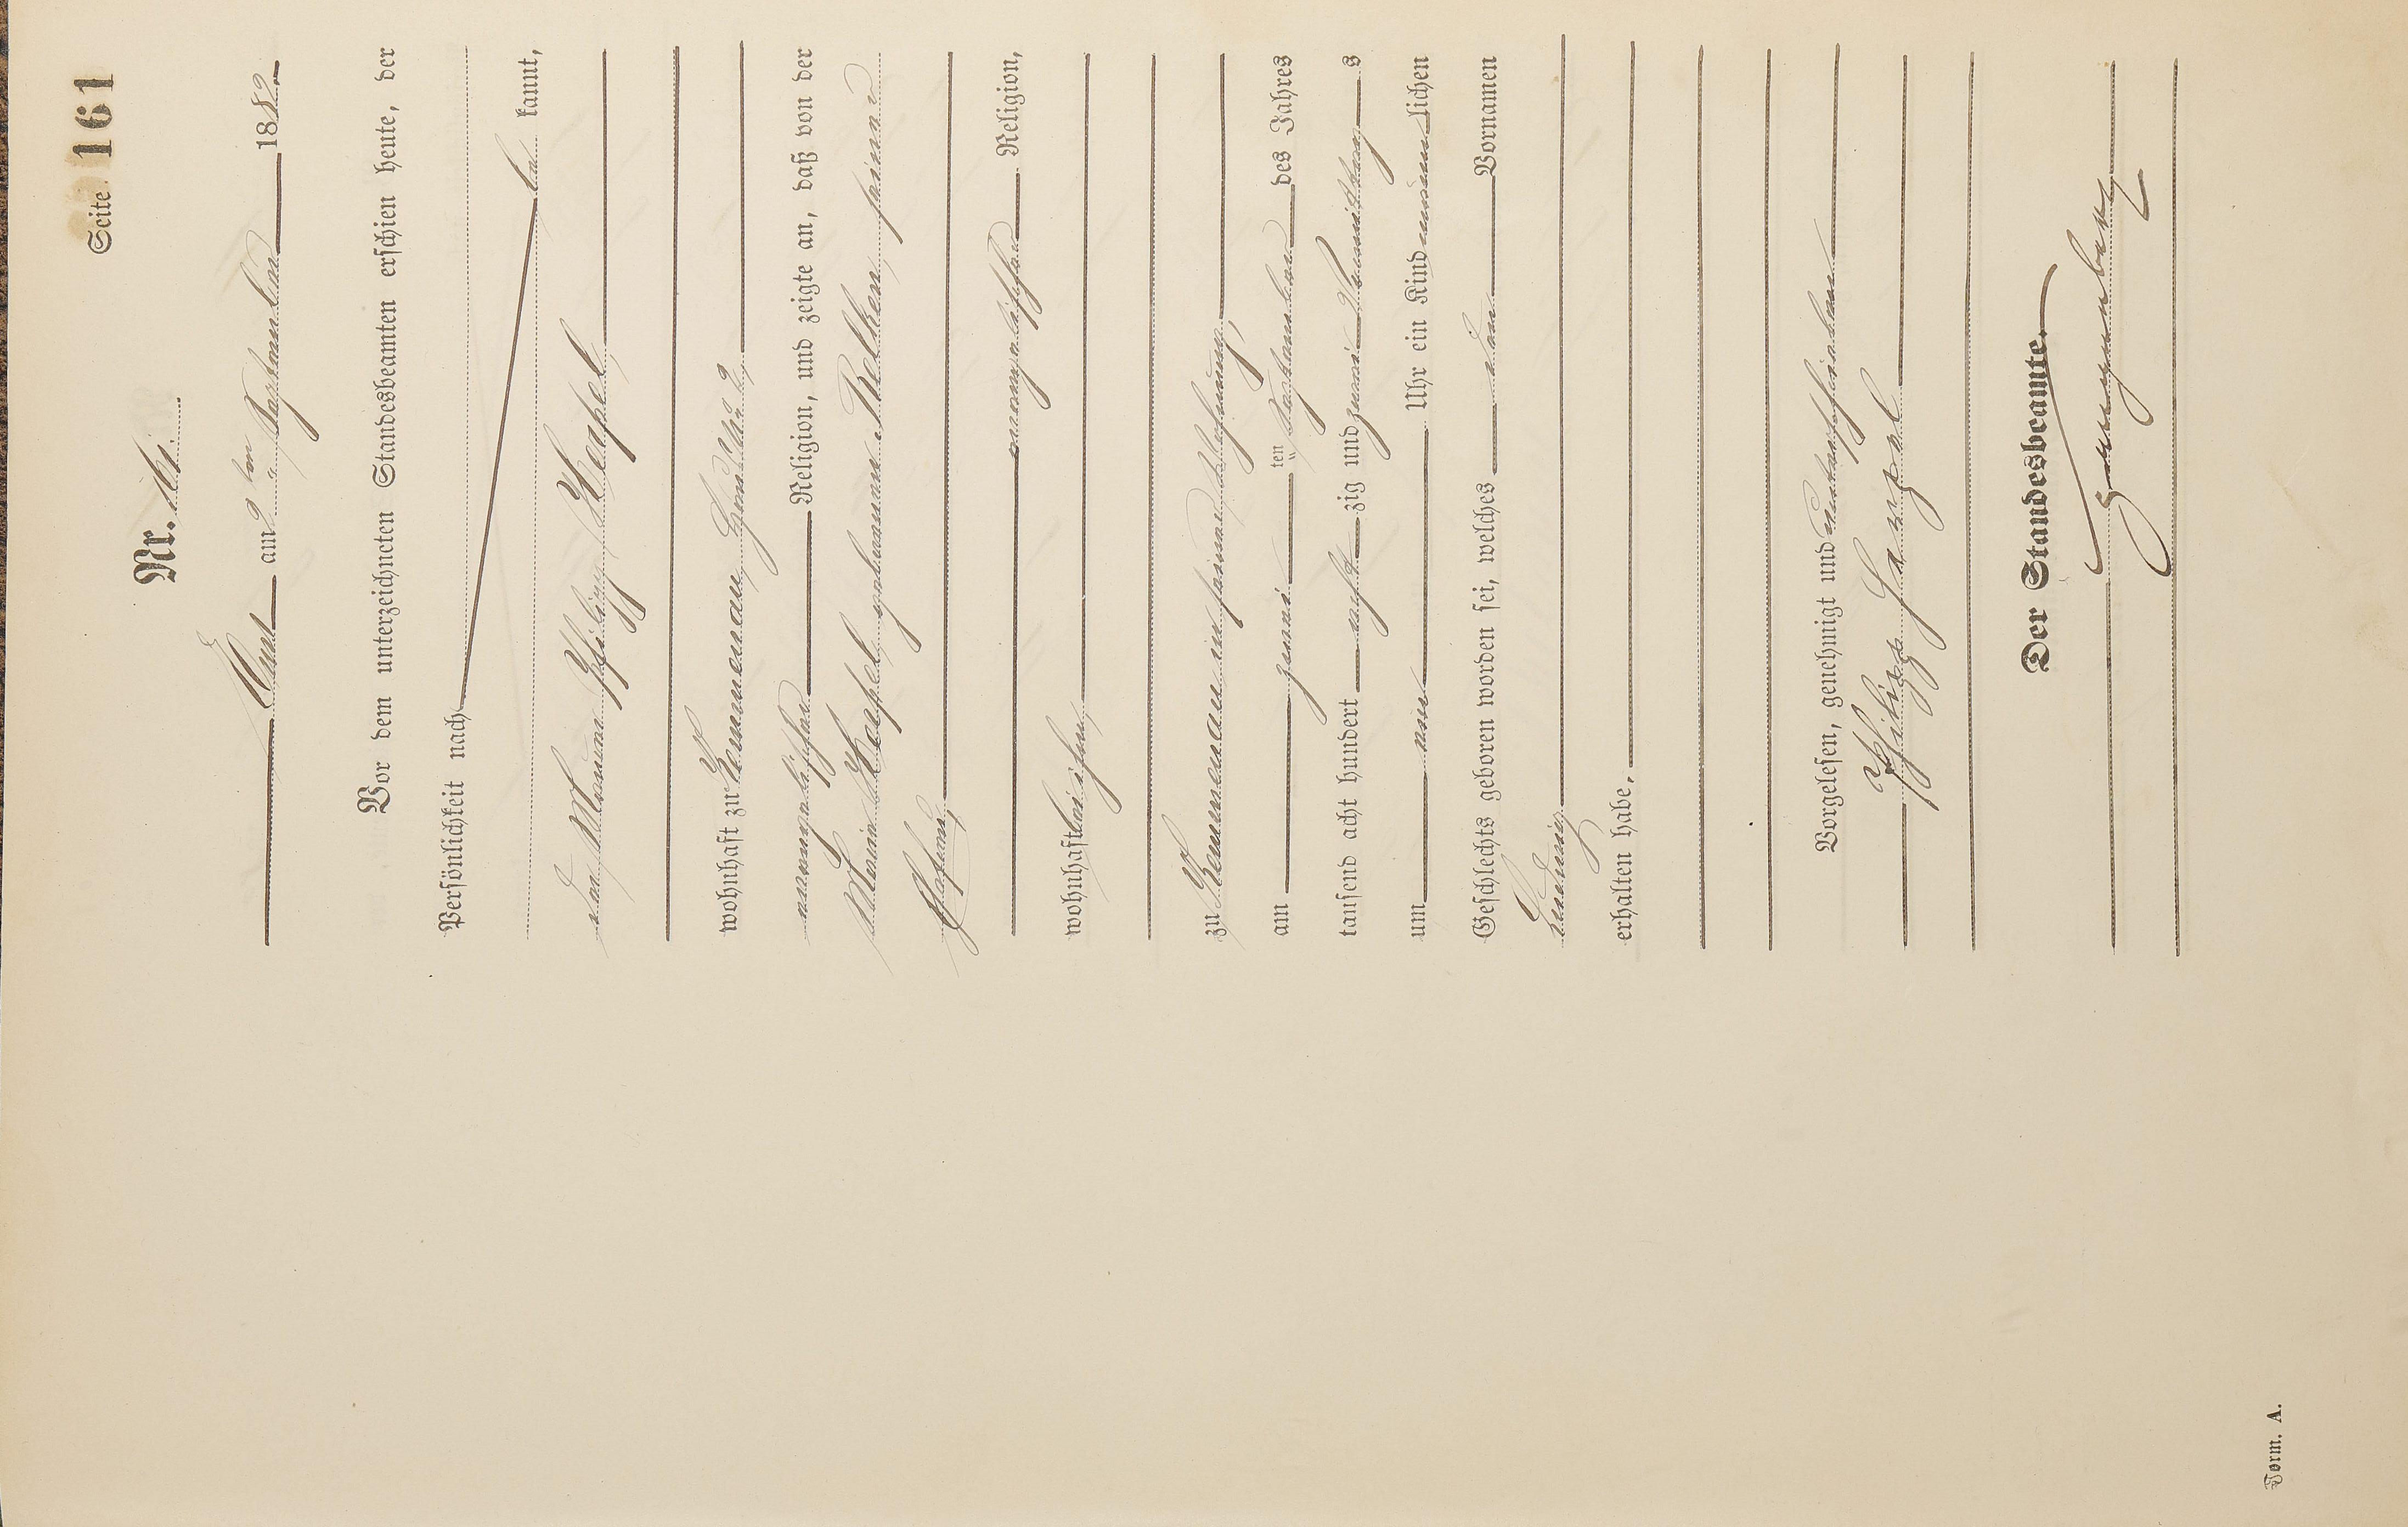 Seite 161
Nr. 161.
Ems am 9ten September 1882.
Vor dem unterzeichneten Standesbeamten erschien heute, der
Persönlichkeit nach
be kannt,
der Maurer Philipp Haxel
wohnhaft zu Kemmenau,
evangelischer Religion, und zeigte an, daß von der
Haxel, geborenen seiner
Ehefrau,
evangelischer Religion,
wohnhaft bei ihm,
zu Kemmenau in seiner Wohnung,
am zwei ten September des Jahres
tausend acht hundert acht zig und zwei Vormittags
um neun Uhr ein Kind männlichen
Geschlechts geboren worden sei, welches den Vornamen
Ludwig
erhalten habe.
Vorgelesen, genehmigt und unterschrieben
Philipp Haxel
Der Standesbeamte.
Form. A.